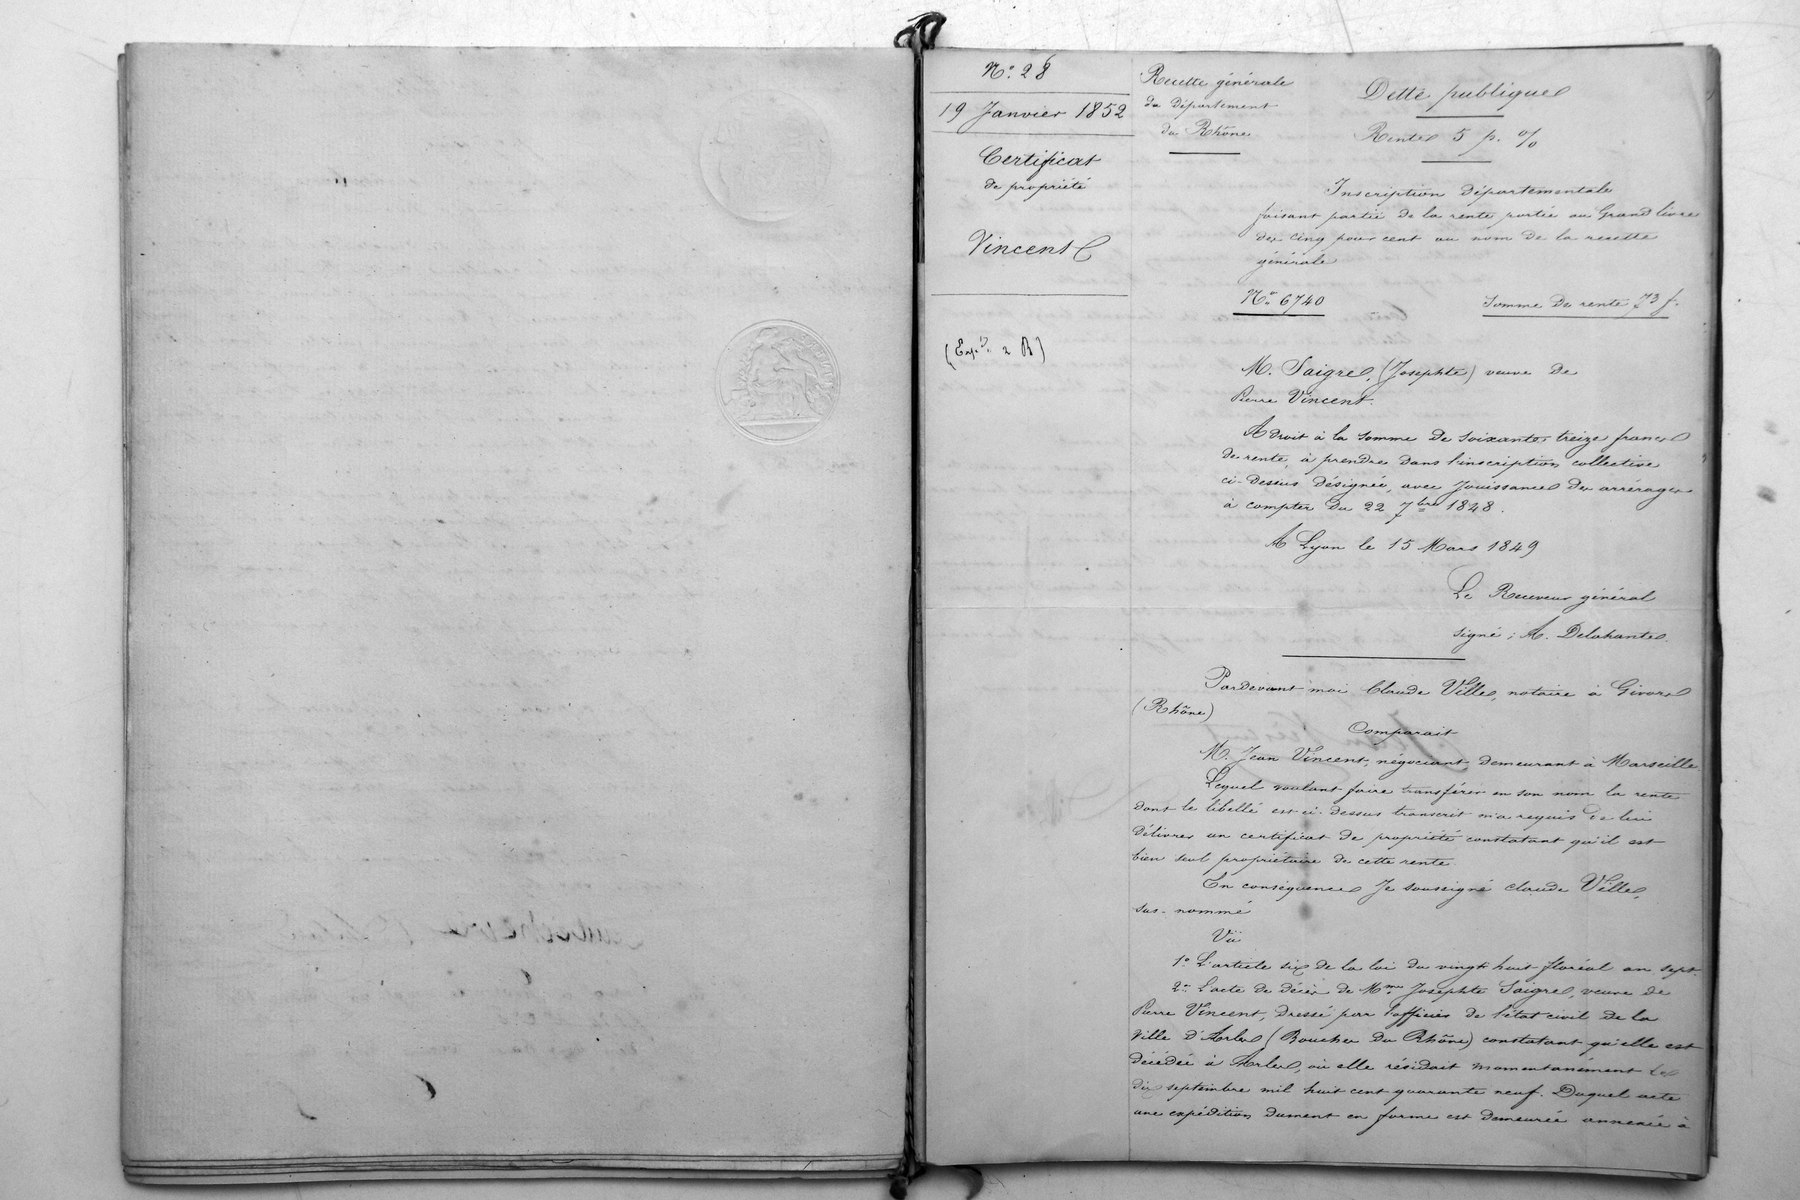 N.° 28
19 Janvier 1852
Certificat
de propriété
Vincent
(Exp.on 2 R)
Recette générale
du Département
du Rhône
Dette publique
Rente 5 p. %
Inscription départementale
faisant partie de la rente portée au Grand livre
des cinq pour cent au nom de la recette
générale
N.° 6740
Somme de rente 73 f.
M. Saigre, (Josephte) veuve de
Pierre Vincent.
A droit à la somme de soixante-treize francs
de rente, à prendre dans l'inscription collective
ci-dessus désignée, avec jouissance des arrérages
à compter du 22 7bre 1848.
A Lyon le 15 Mars 1849
Le Receveur général
signé ; A. Delahante.
Pardevant moi Claude Ville, notaire à Givors
(Rhône)
Comparait
M. Jean Vincent, négociant, demeurant à Marseille.
Lequel voulant faire transférer en son nom la rente
dont le libellé est ci-dessus transcrit m'a requis de lui
délivrer un certificat de propriété constatant qu'il est
bien seul propriétaire de cette rente.
En conséquence Je soussigné Claude Ville,
sus-nommé
Vu
1° L'article six de la loi du vingt huit floréal an sept.
2° L'acte de décès de Mme Josephte Saigre, veuve de
Pierre Vincent, dressé par l'officier de l'état civil de la
ville d'Arles (Bouches du Rhône) constatant qu'elle est
décédée à Arles, où elle résidait momentanément le
dix septembre mil huit cent quarante neuf. Duquel acte
une expédition dument en forme est demeurée annexée à